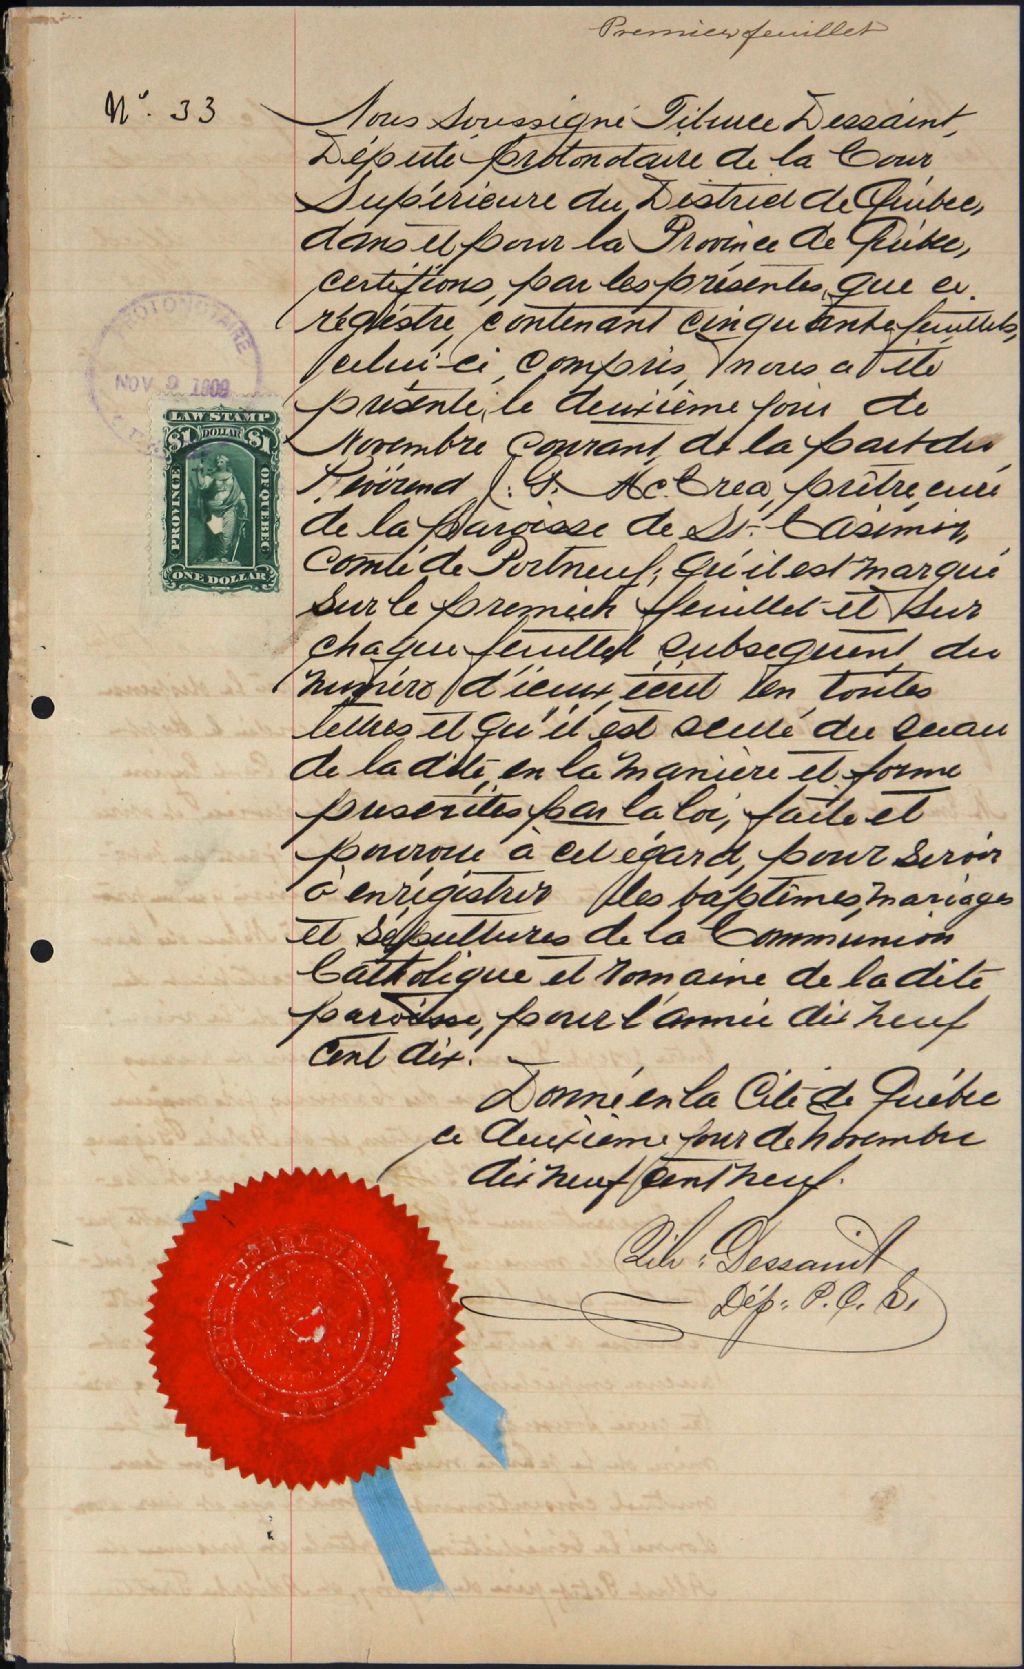 Premier feuillet
N°. 33
Nous soussigné Tiburce Dessaint,
Député protonotaire de la Cour
Supérieure du District de Québec,
dans et pour la Province de Québec,
certifions, par les présentes, que ce
régistre, contenant cinquante feuillets,
celui-ci, compris, nous a été
présenté, le deuxième jour de
Novembre courant, de la part du
Révérend J. G. McCrea, prêtre, curé
de la paroisse de St. Casimir,
Comté de Portneuf; qu'il est marqué
sur le premier feuillet et sur
chaque feuillet subséquent du
numéro d'iceux, écrit en toutes
lettres et qu'il est scellé du sceau
de la dite, en la manière et forme
prescrites par la loi, faite et
pourvue à cet égard, pour servir
à enrégistrer les baptêmes, mariages
et sépultures de la Communion
Catholique et romaine de la dite
paroisse, pour l'année dix neuf
cent dix.
Donné en la Cité de Québec
ce deuxième jour de novembre
dix neuf cent neuf.
Tib: Dessaint
Dép: P. C. S.
PROTONOTAIRE
NOV 2 1909
LAW STAMP
$1 DOLLAR $1
PROVINCE OF QUEBEC
ONE DOLLAR